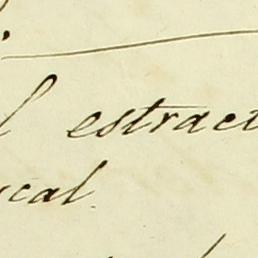 l estract
ucal.